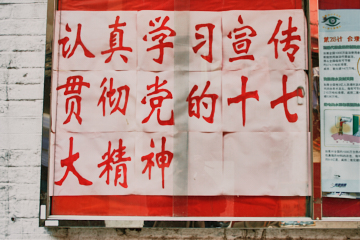 认真学习宣传
贯彻党的十七
大精神